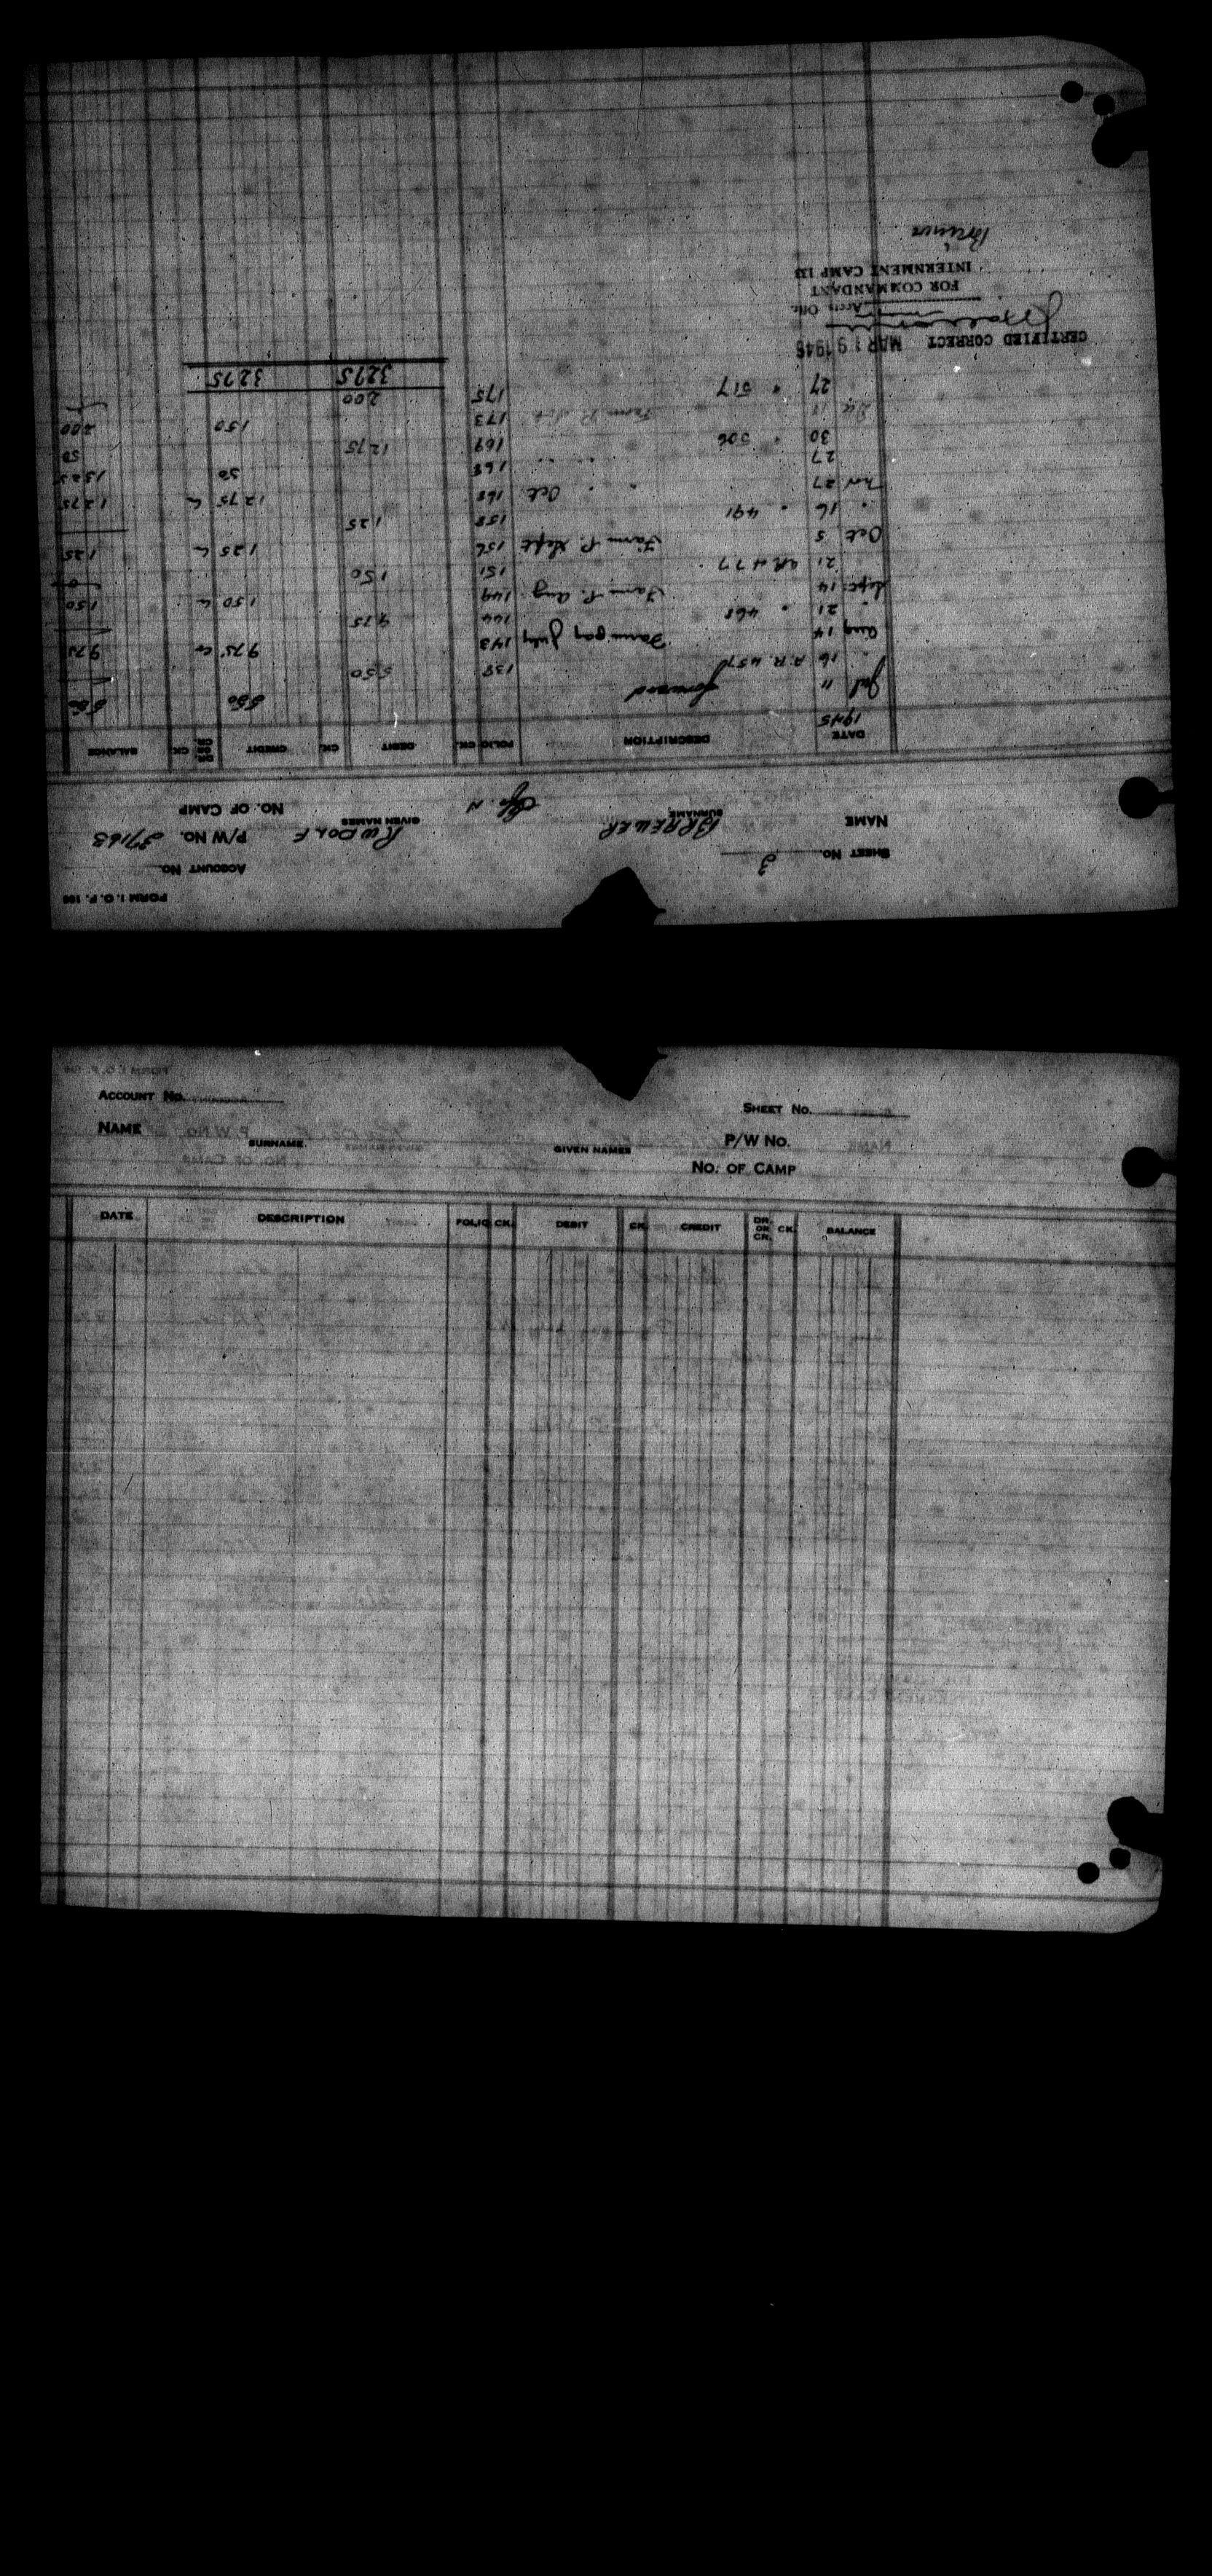 FORM I. O. P. 106
ACCOUNT No.
SHEET No. 3
P/W No. 37163
NAME BRREWER RUDOLF
SURNAME GIVEN NAMES
NO. OF CAMP
DATE DESCRIPTION FOLIO CK. DEBIT CK. CREDIT DR. OR CR. CK. BALANCE
1945
Jul 11 forward 550 550
" 16 A.R. 457 138 550
Aug 14 Farm pay July 143 975 Cr 975
" 21 " 468 144 975
Sept 14 Farm P. Aug 149 150 150
21 AR 477 151 150
Oct 5 Farm P. Sept 156 125 125
" 16 " 491 158 125
Nov 27 " " Oct 168 1275 1275
27 " " 168 50 1325
30 " 506 169 1275 50
Dec 18 Farm P. 173 150 200
27 " 517 175 200
3275 3275
CERTIFIED CORRECT MAR 19 1946
Acctg Offr.
FOR COMMANDANT
INTERNMENT CAMP 133
ACCOUNT No.
SHEET No.
NAME
SURNAME GIVEN NAMES
P/W No.
NO. OF CAMP
DATE DESCRIPTION FOLIO CK. DEBIT CK. CREDIT DR. OR CR. CK. BALANCE